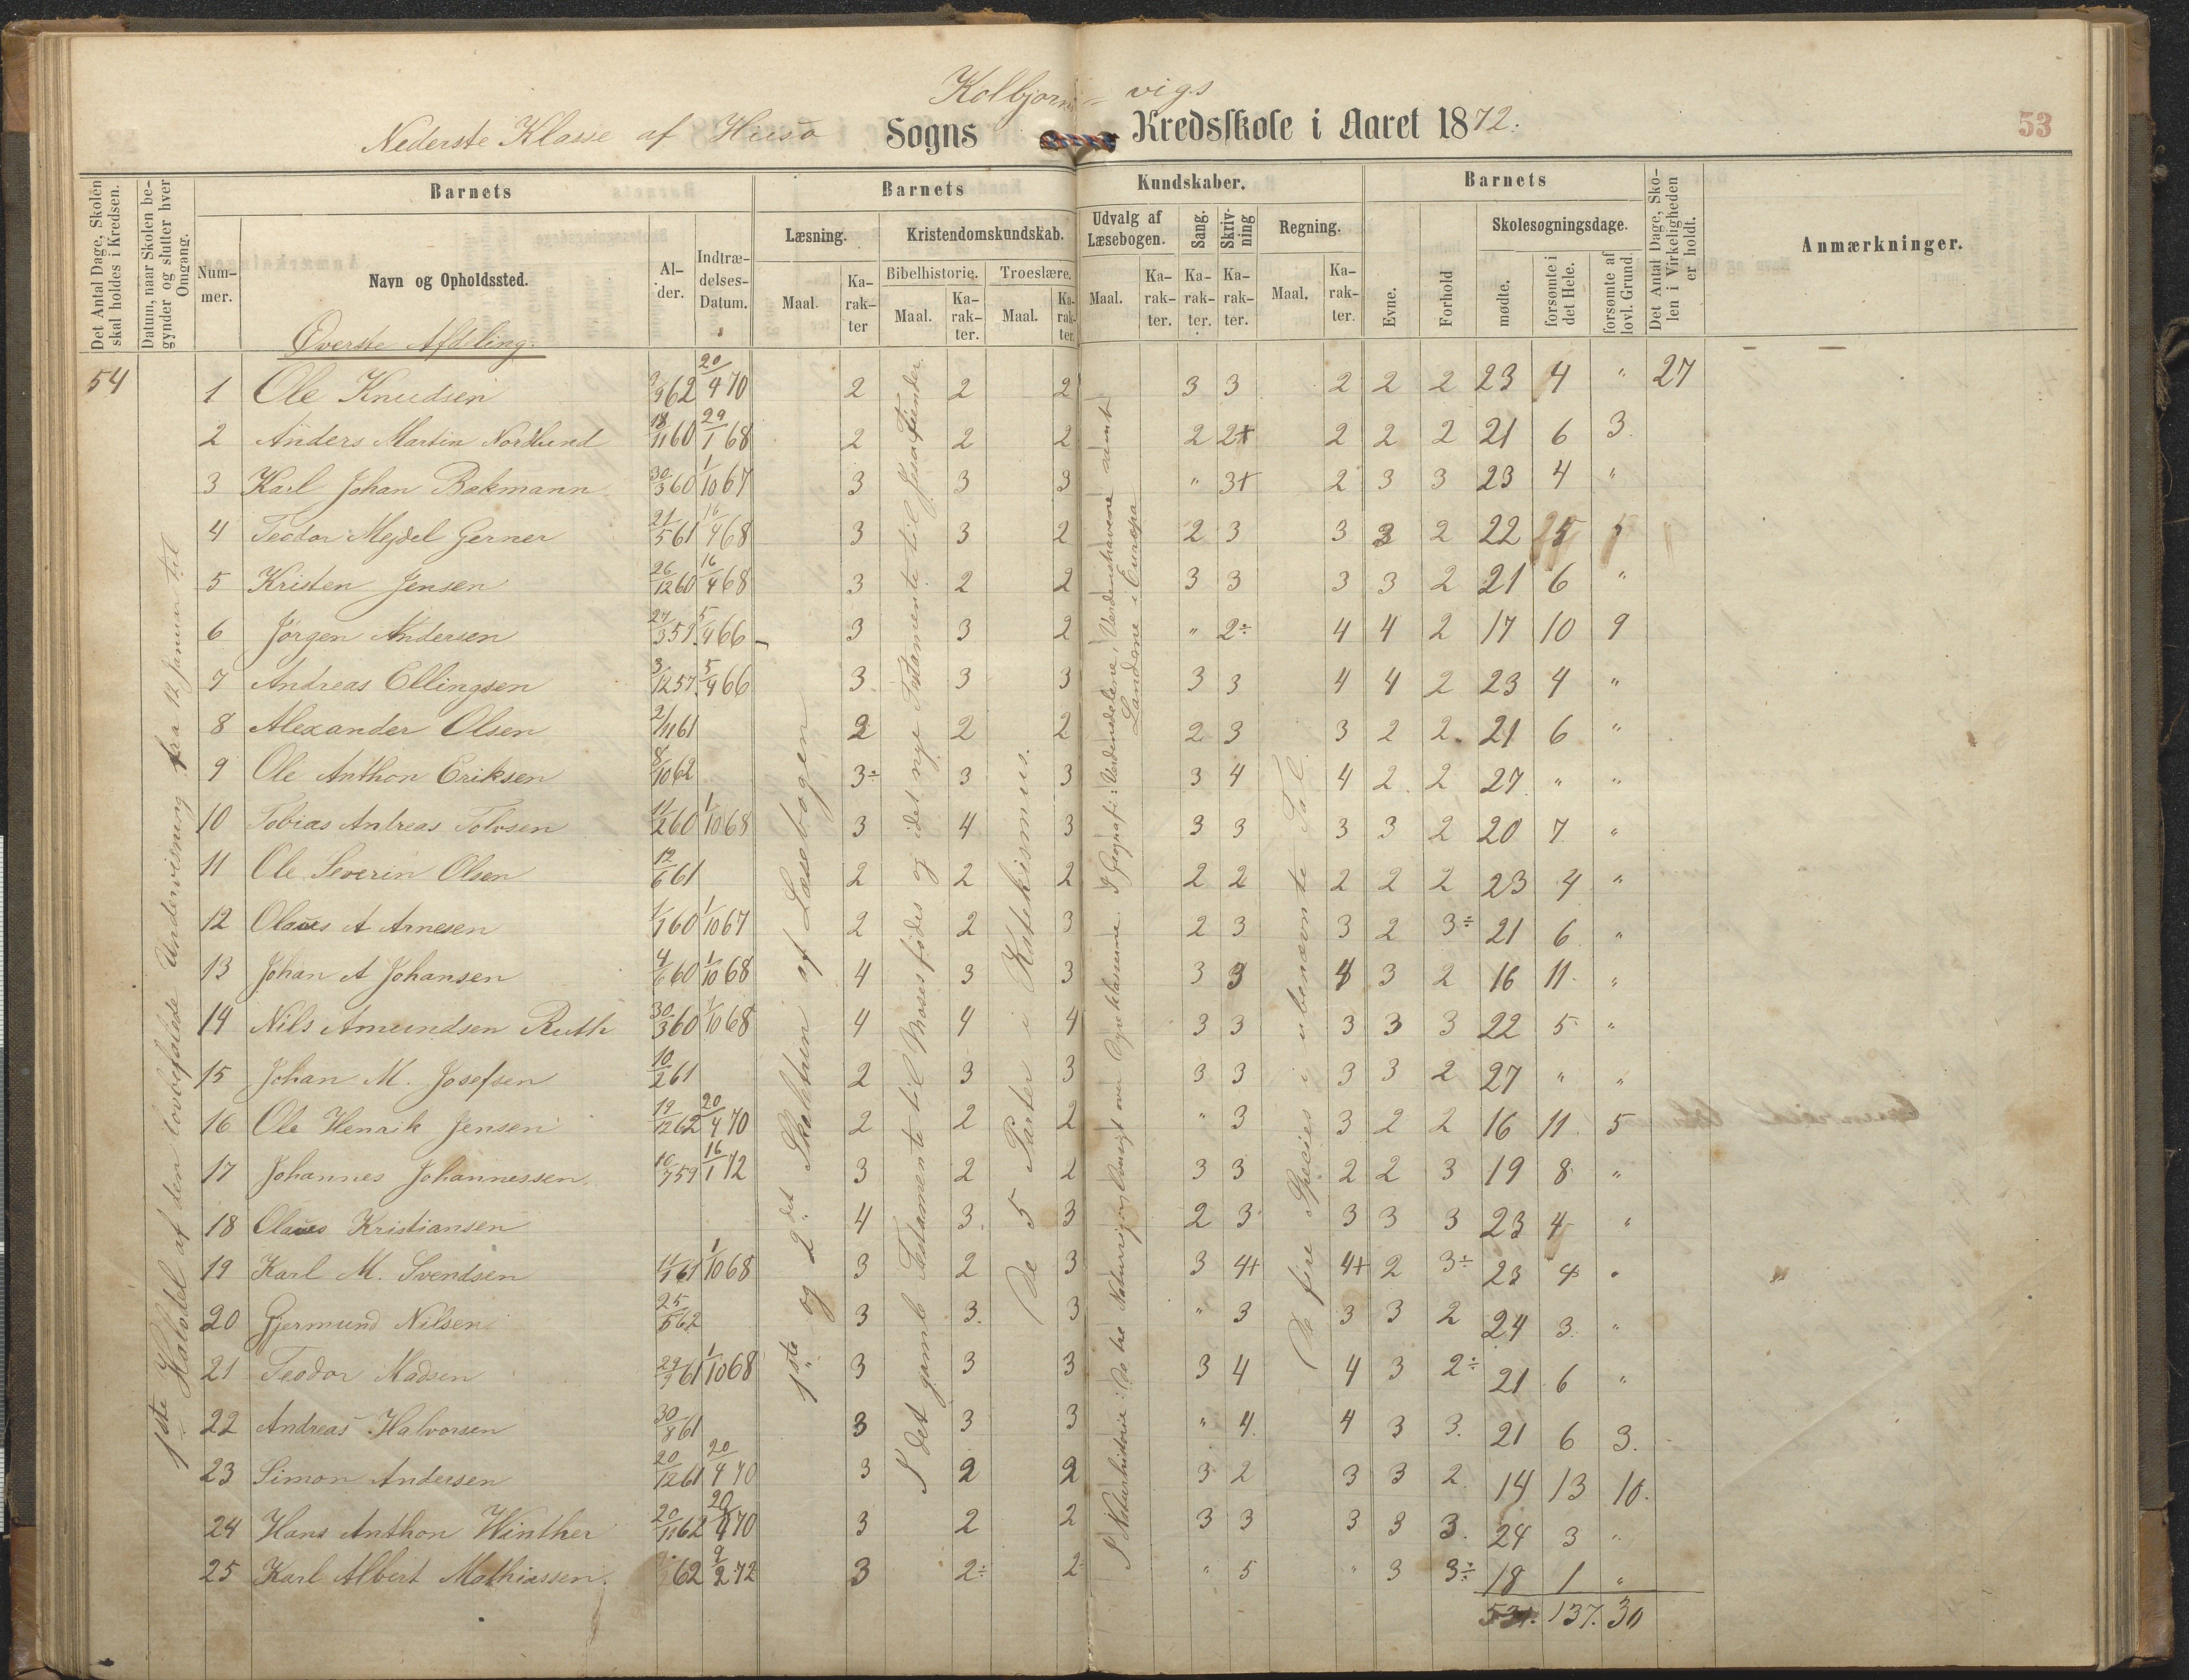 Kolbjørns- vigs
Nederste Klasse af Husø Sogns Kredsskole i Aaret 1872.
53
Det Antal Dage, Skolen skal holdes i Kredsen.
Datum, naar Skolen begynder og slutter hver Omgang.
Barnets
Num-mer.
Navn og Opholdssted.
Al-der.
Indtræ-delses-Datum.
Barnets Kundskaber.
Læsning.
Maal.
Ka-rak-ter
Kristendomskundskab.
Bibelhistorie.
Maal.
Ka-rak-ter.
Troeslære.
Maal.
Ka-rak-ter.
Udvalg af Læsebogen.
Maal.
Ka-rak-ter.
Sang.
Ka-rak-ter.
Skriv-ning
Ka-rak-ter.
Regning.
Maal.
Ka-rak-ter.
Barnets
Evne.
Forhold
Skolesøgningsdage.
mødte.
forsømte i det Hele.
forsømte af lovl. Grund.
Det Antal Dage, Sko-len i Virkeligheden er holdt.
Anmærkninger.
Øverste Afdeling.
54
1ste Halvdel af den lovbefalede Undervisning fra 12 Januar til
1ste og 2det Skoletrin af Læsebogen
I det gamle Testamente til Moses fødes og i det nye Testamente til Jesu Fiender
De 5 Parter i Katekismus.
I Naturhistorie: De tre Naturriger, Oversigt over Dyreklasserne. I Geografi: Verdensdelene, Verdenshavene samt
Landene i Europa
De fire Species i ubenævnte Tal.
1 Ole Knudsen 62 20/4 70 2 2 2 3 3 2 2 2 23 4 " 27
2 Anders Martin Nordlund 18/11 60 29/1 68 2 2 2 2 2+ 2 2 2 21 6 3.
3 Karl Johan Bakmann 30/3 60 1/10 67 3 3 3 " 3+ 2 3 3 23 4 "
4 Teodor Mejdel Gerner 21/5 61 16/4 68 3 3 2 2 3 3 3 2 22 5
5 Kristen Jensen 26/12 60 16/4 68 3 2 2 3 3 3 3 2 21 6 "
6 Jørgen Andersen 27/3 59. 5/4 66 3 3 2 " 2÷ 4 4 2 17 10 9
7 Andreas Ellingsen 3/12 57. 5/4 66 3. 3 3 3 3 4 4 2 23 4 "
8 Alexander Olsen 2/11 61 2 2 2 2 3 3 2 2 21 6 "
9 Ole Anthon Eriksen 8/10 62 3÷ 3 3 3 4 4 2 2 27 " "
10 Tobias Andreas Tolvsen 11/2 60 1/10 68 3 4 3 3 3 3 3 2 20 7 "
11 Ole Severin Olsen 12/6 61 2 2 2 2 2 2 2 2 23 4 "
12 Olaus A Arnesen 1/1 60 1/10 67 2 2 3 2 3 3 2 3÷ 21 6 "
13 Johan A Johansen 4/6 60 1/10 68 4 3 3 3 3 4 3 2 16 11. "
14 Nils Amundsen Ruth 30/3 60 1/10 68 4 4 4 3 3 3 3 3 22 5 "
15 Johan M. Josefsen 10/2 61 2 3 3 3 3 3 3 2 27 " "
16 Ole Henrik Jensen 19/12 62 20/4 70 2 2 2 " 3 3 2 2 16 11. 5
17 Johannes Johannessen 10/7 59 16/1 72 3 2 2 3 3 2 2 3 19 8 "
18 Olaus Kristiansen 4 3. 3 2 3 3 3 3 23 4 "
19 Karl M. Svendsen 61 1/10 68 3 2 3 3 4+ 4+ 2 3÷ 23 4 "
20 Gjermund Nilsen 25/5 62 3 3. 3 " 3 3 3 2 24 3. "
21 Teodor Madsen 29/9 61 1/10 68 3 3 3 3 4 4 3 2÷ 21 6 "
22 Andreas Halvorsen 30/8 61 3 3 3 " 4. 4 3 3. 21 6 3.
23 Simon Andersen 20/12 61 20/4 70 3 2 2 3 2 3 3 2 14 13 10.
24 Hans Anthon Winther 20/11 62 20/4 70 3 2 2 3 3 3 3 3. 24 3 "
25 Karl Albert Mathiassen. 62 9/2 72 3 2÷ 2 " 5 " 3 3÷ 18 1 "
531. 137. 30